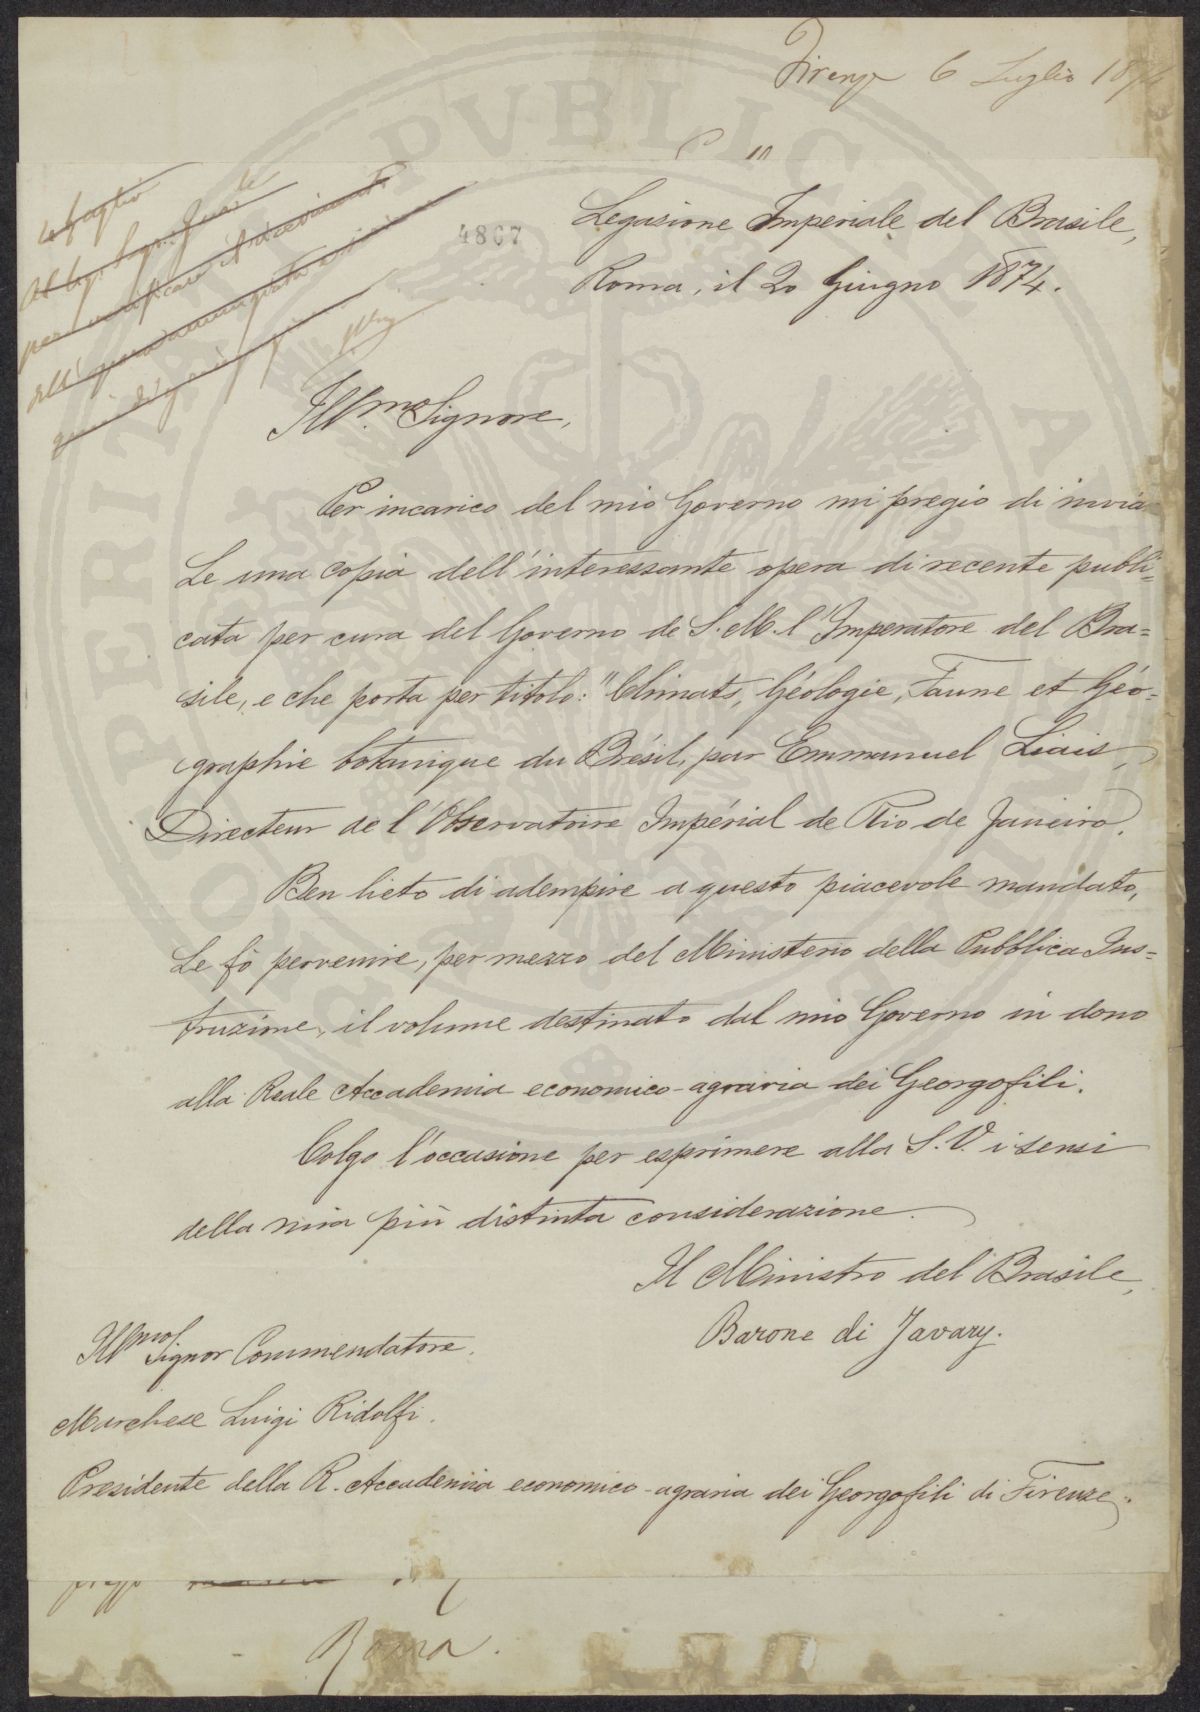 Firenze 6 Luglio 1874
4807
Legazione Imperiale del Brasile,
Roma, il 20 Giugno 1874.
Ill.mo Signore,
Per incarico del mio Governo mi pregio di invia
Le una copia dell'interessante opera di recente publi-
cata per cura del Governo de S. M. l'Imperatore del Bra=
sile, e che porta per titolo: "Climats, Géologie, Faune et Géo-
graphie botanique du Brésil, par Emmanuel Liais,
Directeur de l'Observatoire Impérial de Rio de Janeiro.
Ben lieto di adempire a questo piacevole mandato,
Le fò pervenire, per mezzo del Ministerio della Pubblica Ins=
truzione, il volume destinato dal mio Governo in dono
alla Reale Accademia economico-agraria dei Georgofili.
Colgo l'occasione per esprimere alla S. V. i sensi
della mia più distinta considerazione.
Il Ministro del Brasile,
Barone di Javary.
Ill.mo Signor Commendatore.
Marchese Luigi Ridolfi.
Presidente della R. Accademia economico-agraria dei Georgofili di Firenze.
Roma.
PROPERITATI PVBLICAE AVGENDAE